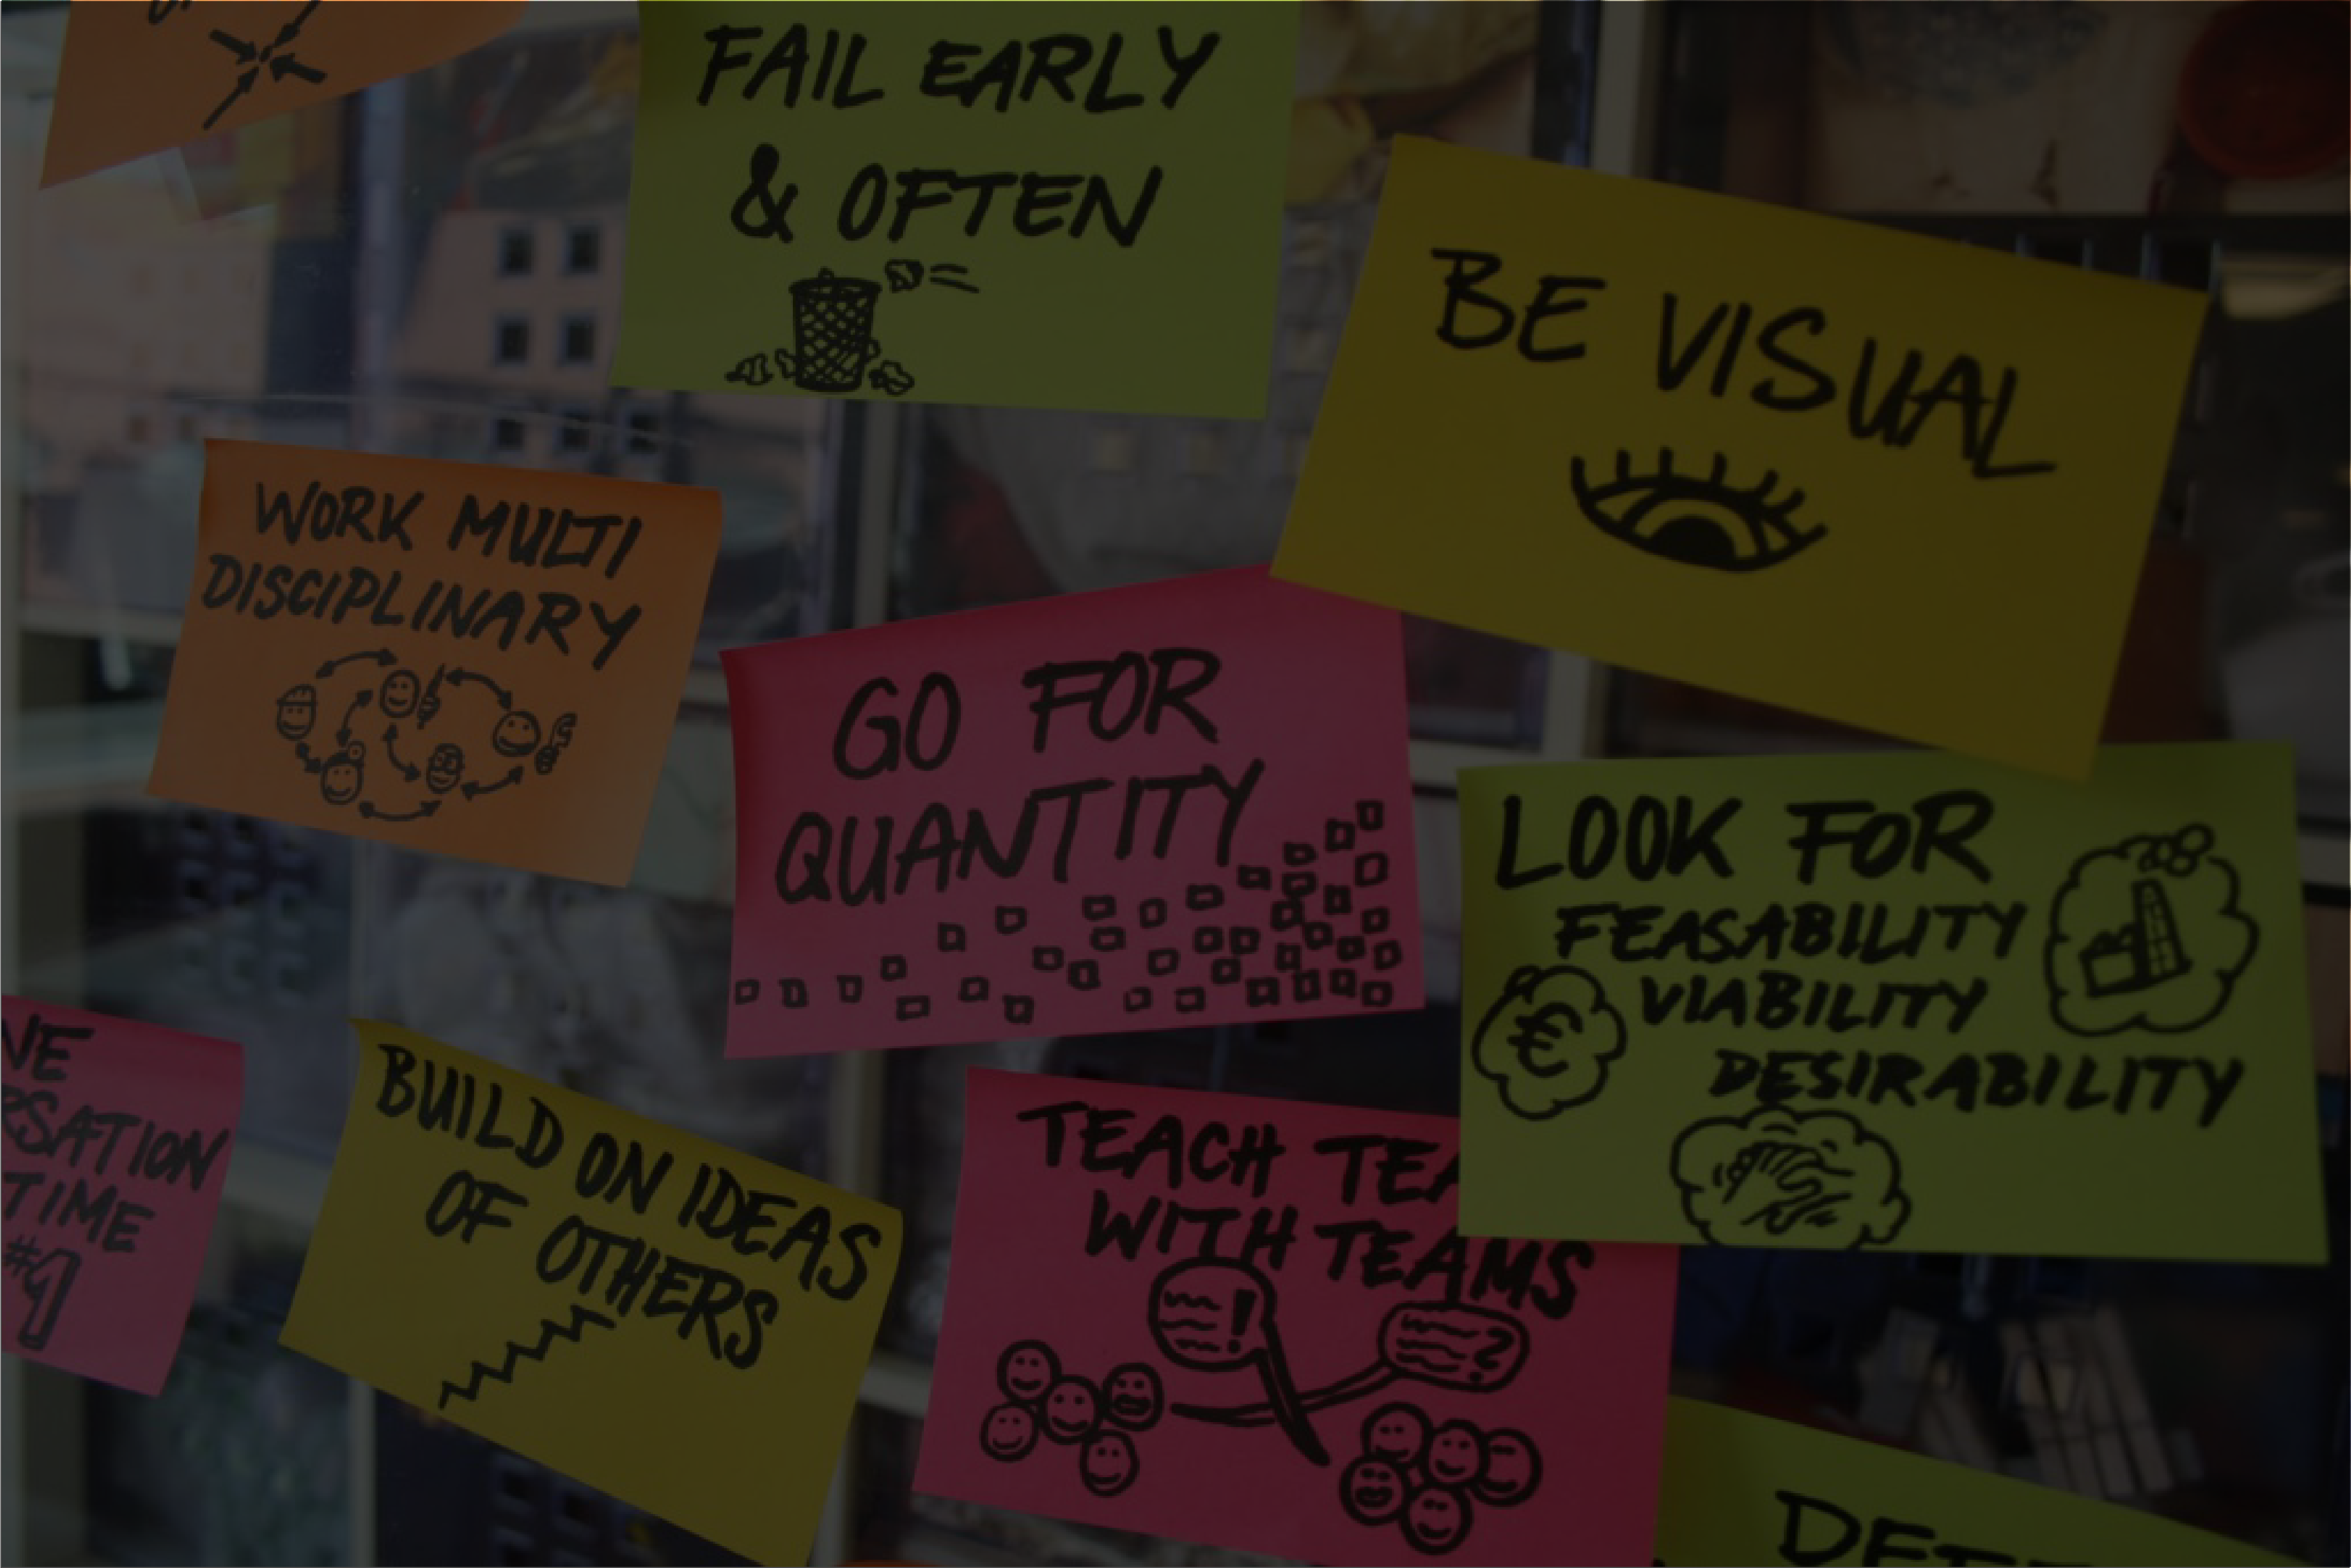 FAIL EARLY
& OFTEN
BE VISUAL
WORK MULTI
DISCIPLINARY
GO FOR
QUANTITY
LOOK FOR
FEASABILITY
VIABILITY
€
DESIRABILITY
TIME
BUILD ON IDEAS
OF OTHERS
TEACH
WITH TEAMS
!
?